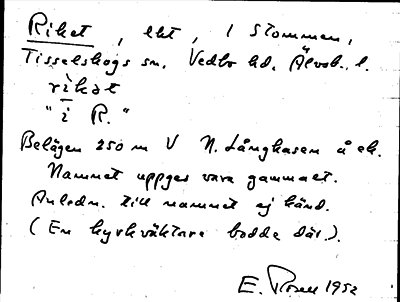 Riket, lht, i Stommen,
Tisselskogs sn, Vedbo hd, Älvsb. l.
rìkət
"i R."
Belägen 250 m V N. Långhasen å ek.
Namnet uppges vara gammalt.
Anledn. till namnet ej känd.
(En kyrkväktare bodde där.).
E. Rosen 1952